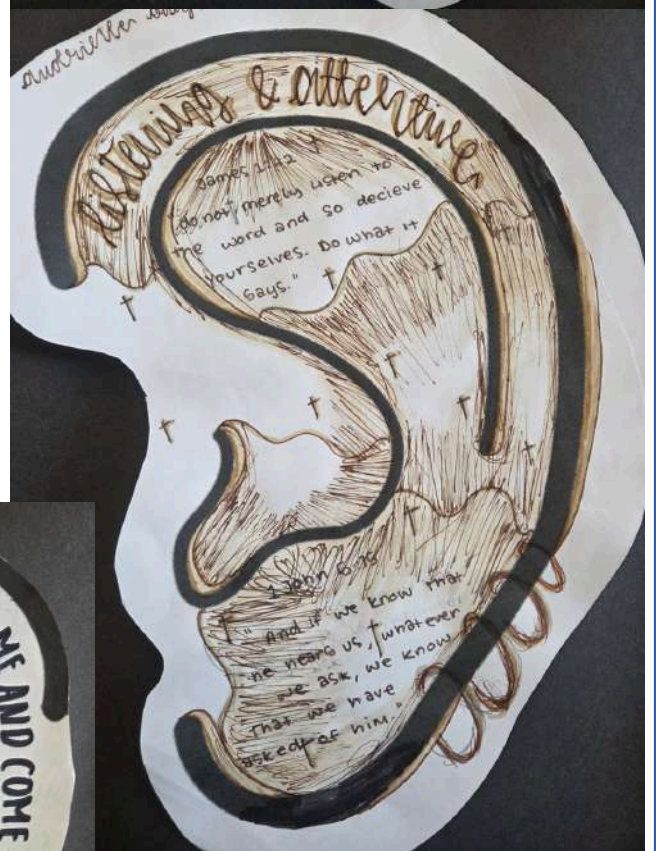 listening & attentive
James 1:22
"do not merely listen to
the word and so decieve
yourselves. Do what it
says."
1 John 5:15
"And if we know that
he hears us, whatever
we ask, we know
that we have
asked of him."
ME AND COME